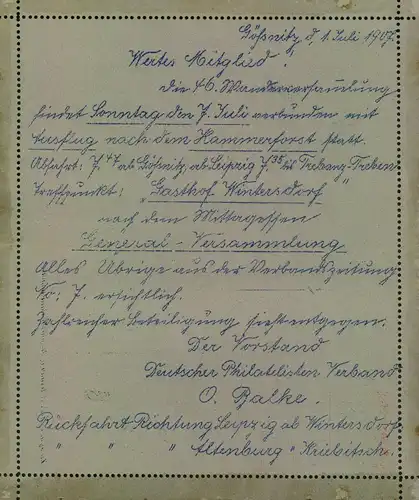 Gößnitz d. 1. Juli 1907.
Wertes Mitglied!
Die 46. Wanderversammlung
findet Sonntag den 7. Juli verbunden mit
Ausflug nach dem Kammerforst statt.
Abfahrt: 7.47 ab Gößnitz, ab Leipzig 7.35 bis Trebanz-Treben
Treffpunkt: "Gasthof Wintersdorf"
nach dem Mittagessen
General-Versammlung
Alles Übrige aus der Verbandszeitung
No: 7. ersichtlich.
Zahlreicher Beteiligung sieht entgegen.
Der Vorstand
Deutscher Philatelisten Verband
O. Balke.
Rückfahrt-Richtung Leipzig ab Wintersdorf
" " " Altenburg " Kriebitsch.